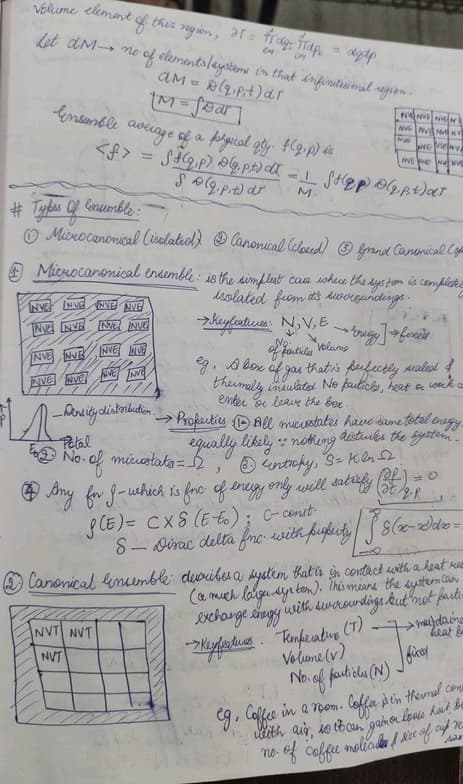 Volume element of this region, dΓ = π dqi π dpi = dqdp
Let dM → no. of elements/systems in that infinitesimal region.
dM = D(q,p,t) dΓ
M = ∫DdΓ
Ensemble average of a physical qty. f(q,p) is
<f> = ∫f(q,p) D(q,p,t)dΓ / ∫ D(q,p,t)dΓ = 1/M ∫f(q,p) D(q,p,t)dΓ
NVE NVE NVE
NVE NVE
NVE NVE
NVE NVE
# Types of Ensemble:
① Microcanonical (isolated) ② Canonical (closed) ③ Grand Canonical
① Microcanonical ensemble: is the simplest case where the system is completely
isolated from its surroundings.
NVE NVE NVE NVE
NVE NVE NVE NVE
NVE NVE NVE NVE
NVE NVE NVE NVE
→ Key features: N, V, E → Energy] → fixed
No. of particles Volume
eg, A box of gas that is perfectly sealed &
thermally insulated No particles, heat or work
enter or leave the box.
Density distribution.
E₀ Etotal
→ Properties ① All microstates have same total energy
equally likely ∵ nothing disturbs the system.
② No. of microstates = Ω, ③ Entropy, S = K ln Ω
④ Any fnr ρ - which is fnc. of energy only will satisfy (∂ρ/∂t)q,p = 0
ρ(E) = C × δ(E-E₀) ; C - const.
δ - Dirac delta fnc. with property ∫δ(x-x')dx =
② Canonical Ensemble: describes a system that is in contact with a heat
(a much larger system). This means the system can
exchange energy with surroundings but not
NVT NVT
NVT
→ Key features. Temperature (T)
Volume (V)
No. of particles (N)
fixed
heat
eg, Coffee in a room. Coffee is in thermal
with air, so it can gain or lose heat
no. of coffee molecules & size of cup